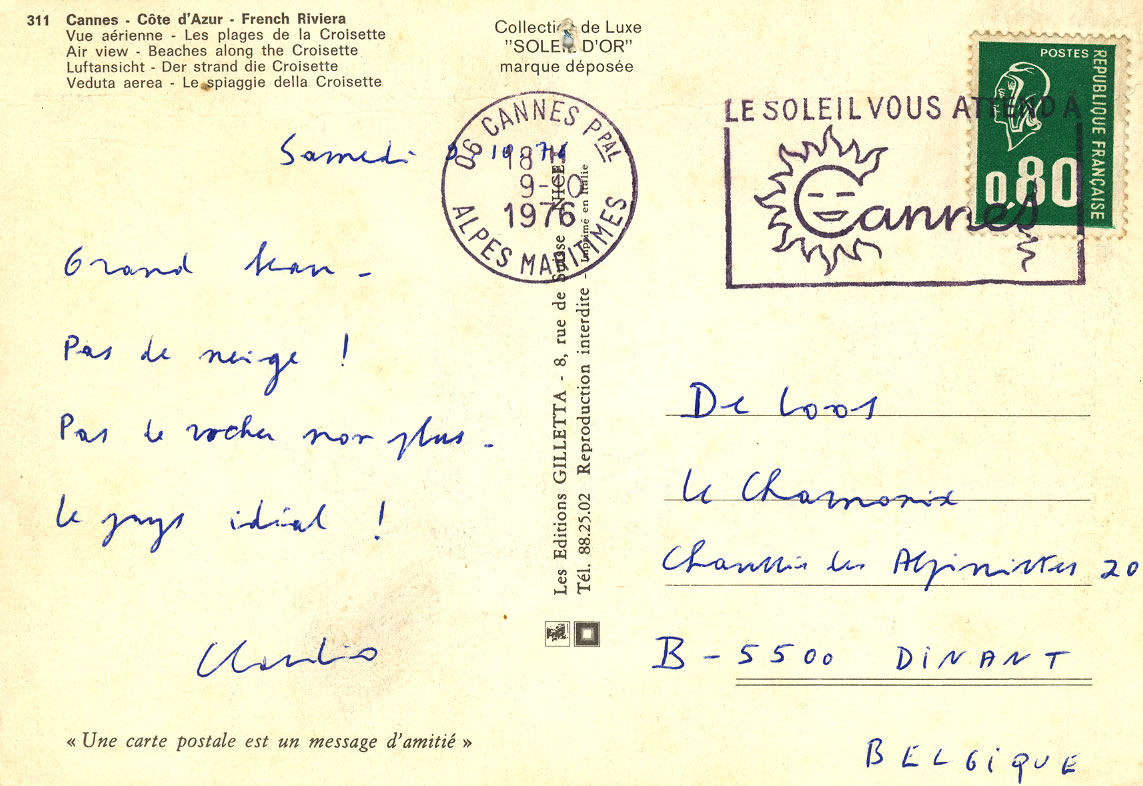 311 Cannes - Côte d'Azur - French Riviera
Vue aérienne - Les plages de la Croisette
Air view - Beaches along the Croisette
Luftansicht - Der strand die Croisette
Veduta aerea - Le spiaggie della Croisette
Collection de Luxe
"SOLEIL D'OR"
marque déposée
Samedi 9 10 76
Grand
Pas de neige !
Pas de rocher non plus -
Le pays idéal !
Claudio
« Une carte postale est un message d'amitié »
Les Editions GILLETTA - 8, rue de Suisse NICE
Tél. 88.25.02 Reproduction interdite - Imprimé en Italie
06 CANNES PPAL
18H
9-10
1976
ALPES MARITIMES
LE SOLEIL VOUS ATTEND A
Cannes
POSTES
RÉPUBLIQUE FRANÇAISE
0,80
De Loos
Le Chamonix
Chaussée les Alpinistes 20
B - 5500 DINANT
BELGIQUE